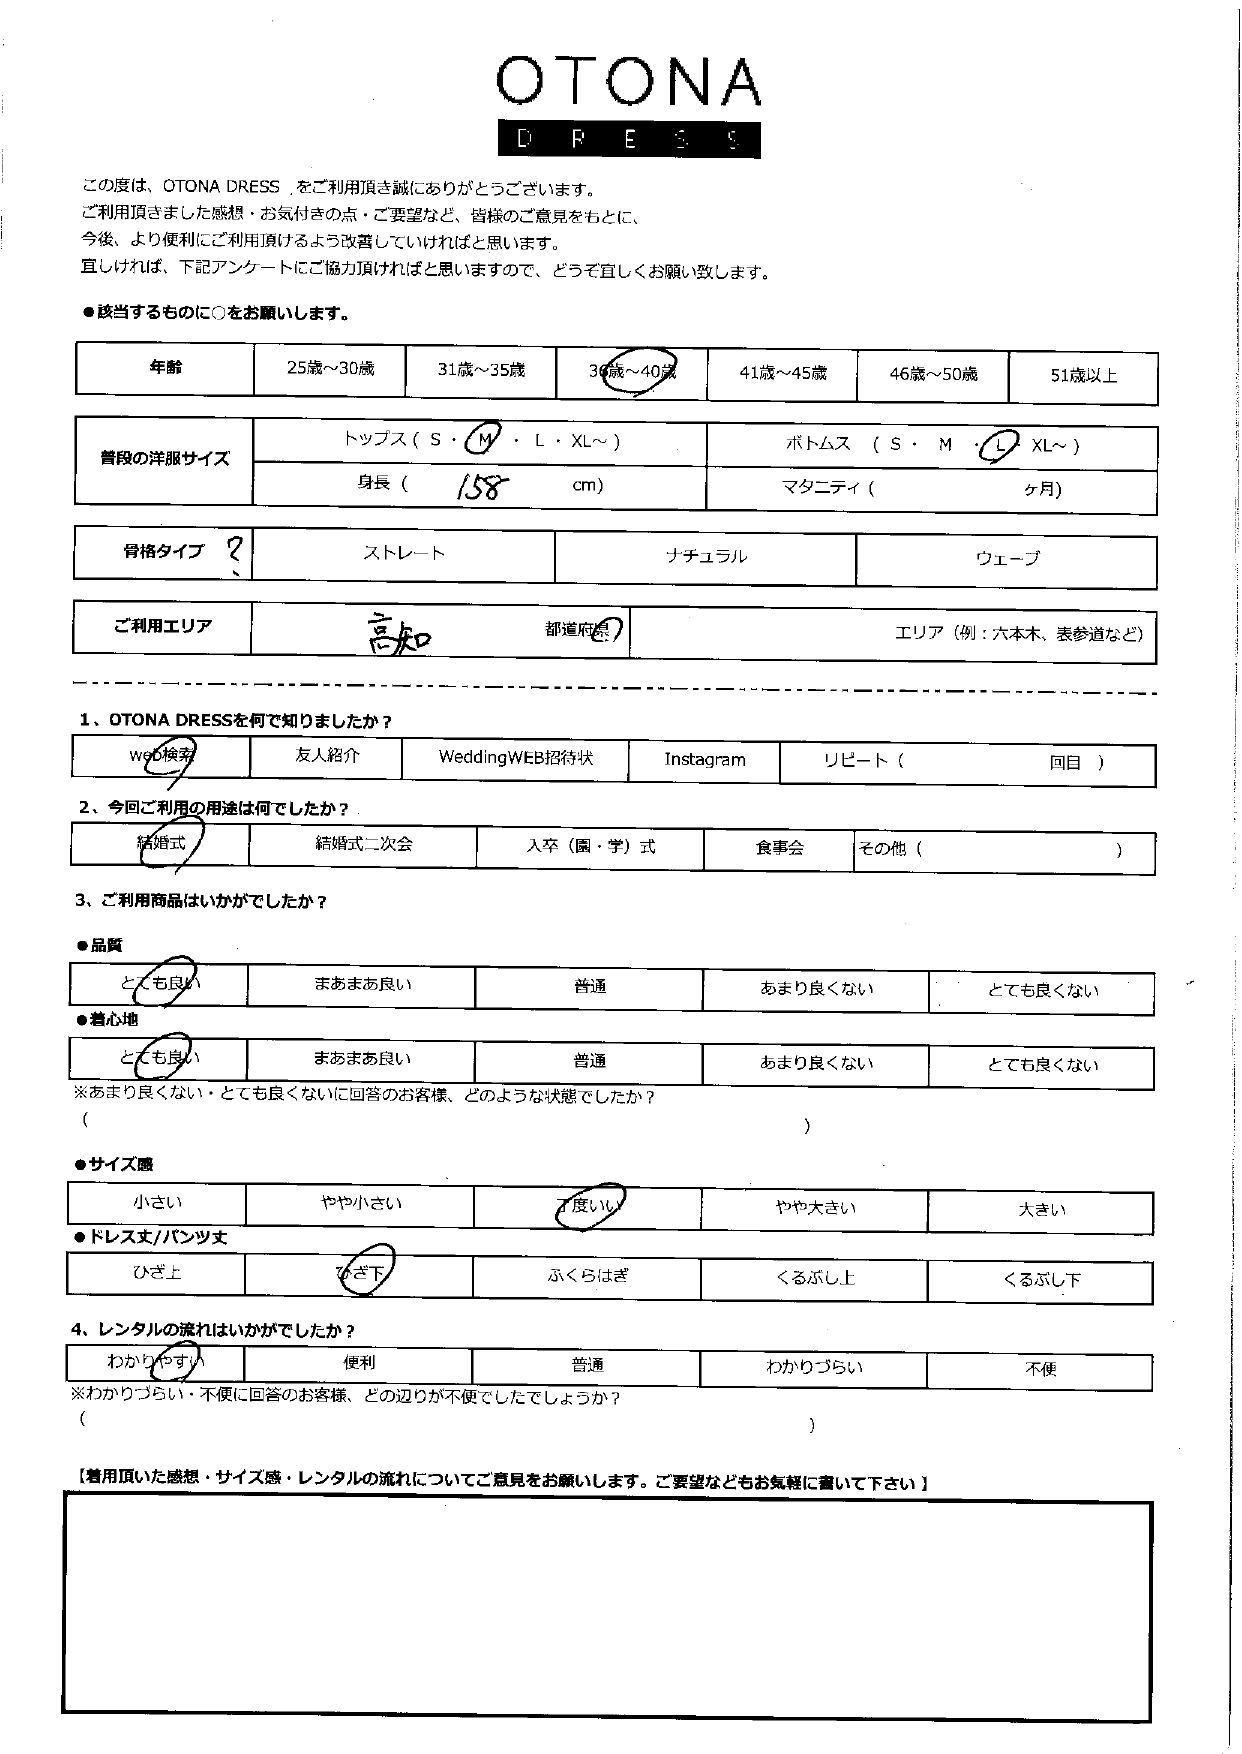 OTONA
DRESS
この度は、OTONA DRESS をご利用頂き誠にありがとうございます。
ご利用頂きました感想・お気付きの点・ご要望など、皆様のご意見をもとに、
今後、より便利にご利用頂けるよう改善していければと思います。
宜しければ、下記アンケートにご協力頂ければと思いますので、どうぞ宜しくお願い致します。
●該当するものに○をお願いします。
年齢 25歳～30歳 31歳～35歳 36歳～40歳 41歳～45歳 46歳～50歳 51歳以上
普段の洋服サイズ トップス ( S ・ M ・ L ・ XL～ ) ボトムス ( S ・ M ・ L ・ XL～ )
身長 ( 158 cm) マタニティ ( ヶ月)
骨格タイプ ? ストレート ナチュラル ウェーブ
ご利用エリア 高知 都道府県 エリア（例：六本木、表参道など）
1、OTONA DRESSを何で知りましたか？
web検索 友人紹介 WeddingWEB招待状 Instagram リピート ( 回目 )
2、今回ご利用の用途は何でしたか？
結婚式 結婚式二次会 入卒（園・学）式 食事会 その他 ( )
3、ご利用商品はいかがでしたか？
●品質
とても良い まあまあ良い 普通 あまり良くない とても良くない
●着心地
とても良い まあまあ良い 普通 あまり良くない とても良くない
※あまり良くない・とても良くないに回答のお客様、どのような状態でしたか？
( )
●サイズ感
小さい やや小さい 丁度いい やや大きい 大きい
●ドレス丈/パンツ丈
ひざ上 ひざ下 ふくらはぎ くるぶし上 くるぶし下
4、レンタルの流れはいかがでしたか？
わかりやすい 便利 普通 わかりづらい 不便
※わかりづらい・不便に回答のお客様、どの辺りが不便でしたでしょうか？
( )
【着用頂いた感想・サイズ感・レンタルの流れについてご意見をお願いします。ご要望などもお気軽に書いて下さい】